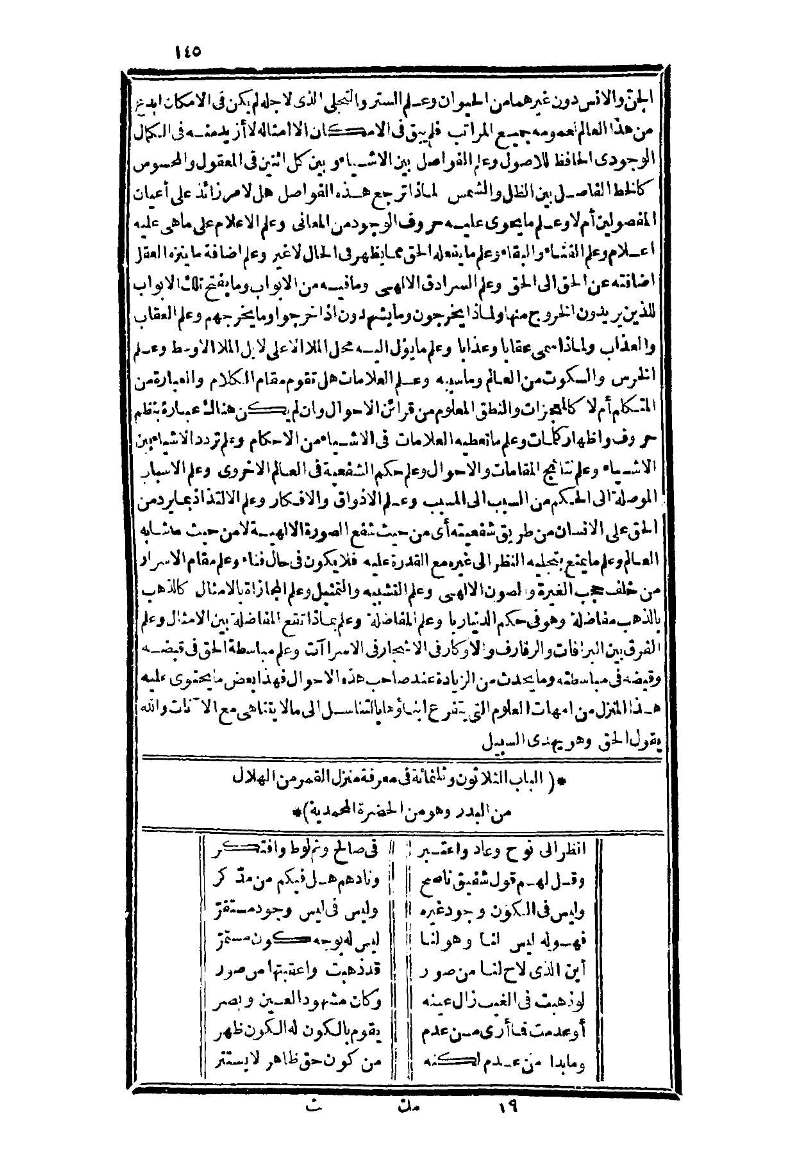 ١٤٥
الجن والانس دون غيرهما من الحيوان وعلم الستر والتجلي الذى لاجله لم يكن فى الامكان ابدع
من هذا العالم لعمومه جميع المراتب فلم يبق فى الامكان الا امثاله لا أزيد منه فى الكمال
الوجودى الحافظ للاصول وعلم الفواصل بين الاشياء وبين كل اثنين فى المعقول والمحسوس
كالخط الفاصل بين الظل والشمس لماذا ترجع هذه الفواصل هل لامر زائد على أعيان
المفصولين أم لا وعلم ما يحوى عليه حروف الوجود من المعانى وعلم الاعلام على ماهى عليه
اعلام وعلم الفناء والبقاء وعلم ما يفعله الحق مما يظهر فى الحال لاغير وعلم اضافة ما ينزه العقل
اضافته عن الحق الى الحق وعلم السرادق الالهى ومافيه من الابواب وما يفتح تلك الابواب
للذين يريدون الخروج منها ولماذا يخرجون وما يشهدون اذا خرجوا وما يخرجهم وعلم العقاب
والعذاب ولماذا سمى عقابا وعذابا وعلم ما يؤل اليه محل الملا الاعلى لا بل الملا الاوسط وعلم
الخرس والسكوت من العالم وما سببه وعلم العلامات هل تقوم مقام الكلام والعبارة من
المتكلم أم لا كالمعجزات والنطق المعلوم من قرائن الاحوال وان لم يكن هنالك عبارة بنظم
حروف واظهار كلمات وعلم ما تعطيه العلامات فى الاشياء من الاحكام وعلم تردد الاشياء بين
الاشياء وعلم نتائج المقامات والاحوال وعلم حكم الشفعية فى العالم الاخروى وعلم الاسباب
الموصلة الى الحكم من السبب الى المسبب وعلم الاذواق والافكار وعلم الالتذاذ بما يرد من
الحق على الانسان من طريق شفعيته أى من حيث شفع الصورة الالهية لا من حيث مشابه
العالم وعلم ما يمنع بتجليه النظر الى غيره مع القدرة عليه فلا يكون فى حال فناء وعلم مقام الاسرار
من خلف حجب الغيرة والصون الالهى وعلم التشبيه والتمثيل وعلم المجازاة بالامثال كالذهب
بالذهب مفاضلة وهو فى حكم الدنيا ربا وعلم المفاضلة وعلم بماذا تقع المفاضلة بين الامثال وعلم
الفرق بين البراقات والرفارف والاوكار فى الاشجار فى الاسرآآت وعلم مباسطة الحق فى قبضه
وقبضه فى مباسطته وما يحدث من الزيادة عند صاحب هذه الاحوال فهذا بعض ما يحتوى عليه
هذا المنزل من امهات العلوم التى يتفرع ابناؤها بالتناسل الى مالا يتناهى مع الآنات والله
يقول الحق وهو يهدى السبيل
*( الباب الثلاثون وثلثمائة فى معرفة منزل القمر من الهلال
من البدر وهو من الحضرة المحمدية )*
انظر الى نوح وعاد واعتبر فى صالح وثم لوط وافتكر
وقل لهم قول شفيق ناصح ونادهم هل فيكم من مدّكر
وليس فى الكون وجود غيره وليس فى ليس وجود مستقرّ
فهو له ليس لنا وهو لنا ليس له بوجه كون مستمرّ
أين الذى لاح لنا من صور قد ذهبت واعقبتها من صور
لو ذهبت فى الغيب زال عينه وكان مشهود العين وبصر
أو عدمت فما أرى من عدم يقوم بالكون له الكون ظهر
وما بدا من عدم لكنه من كون حق ظاهر لا يستتر
١٩ مك ث